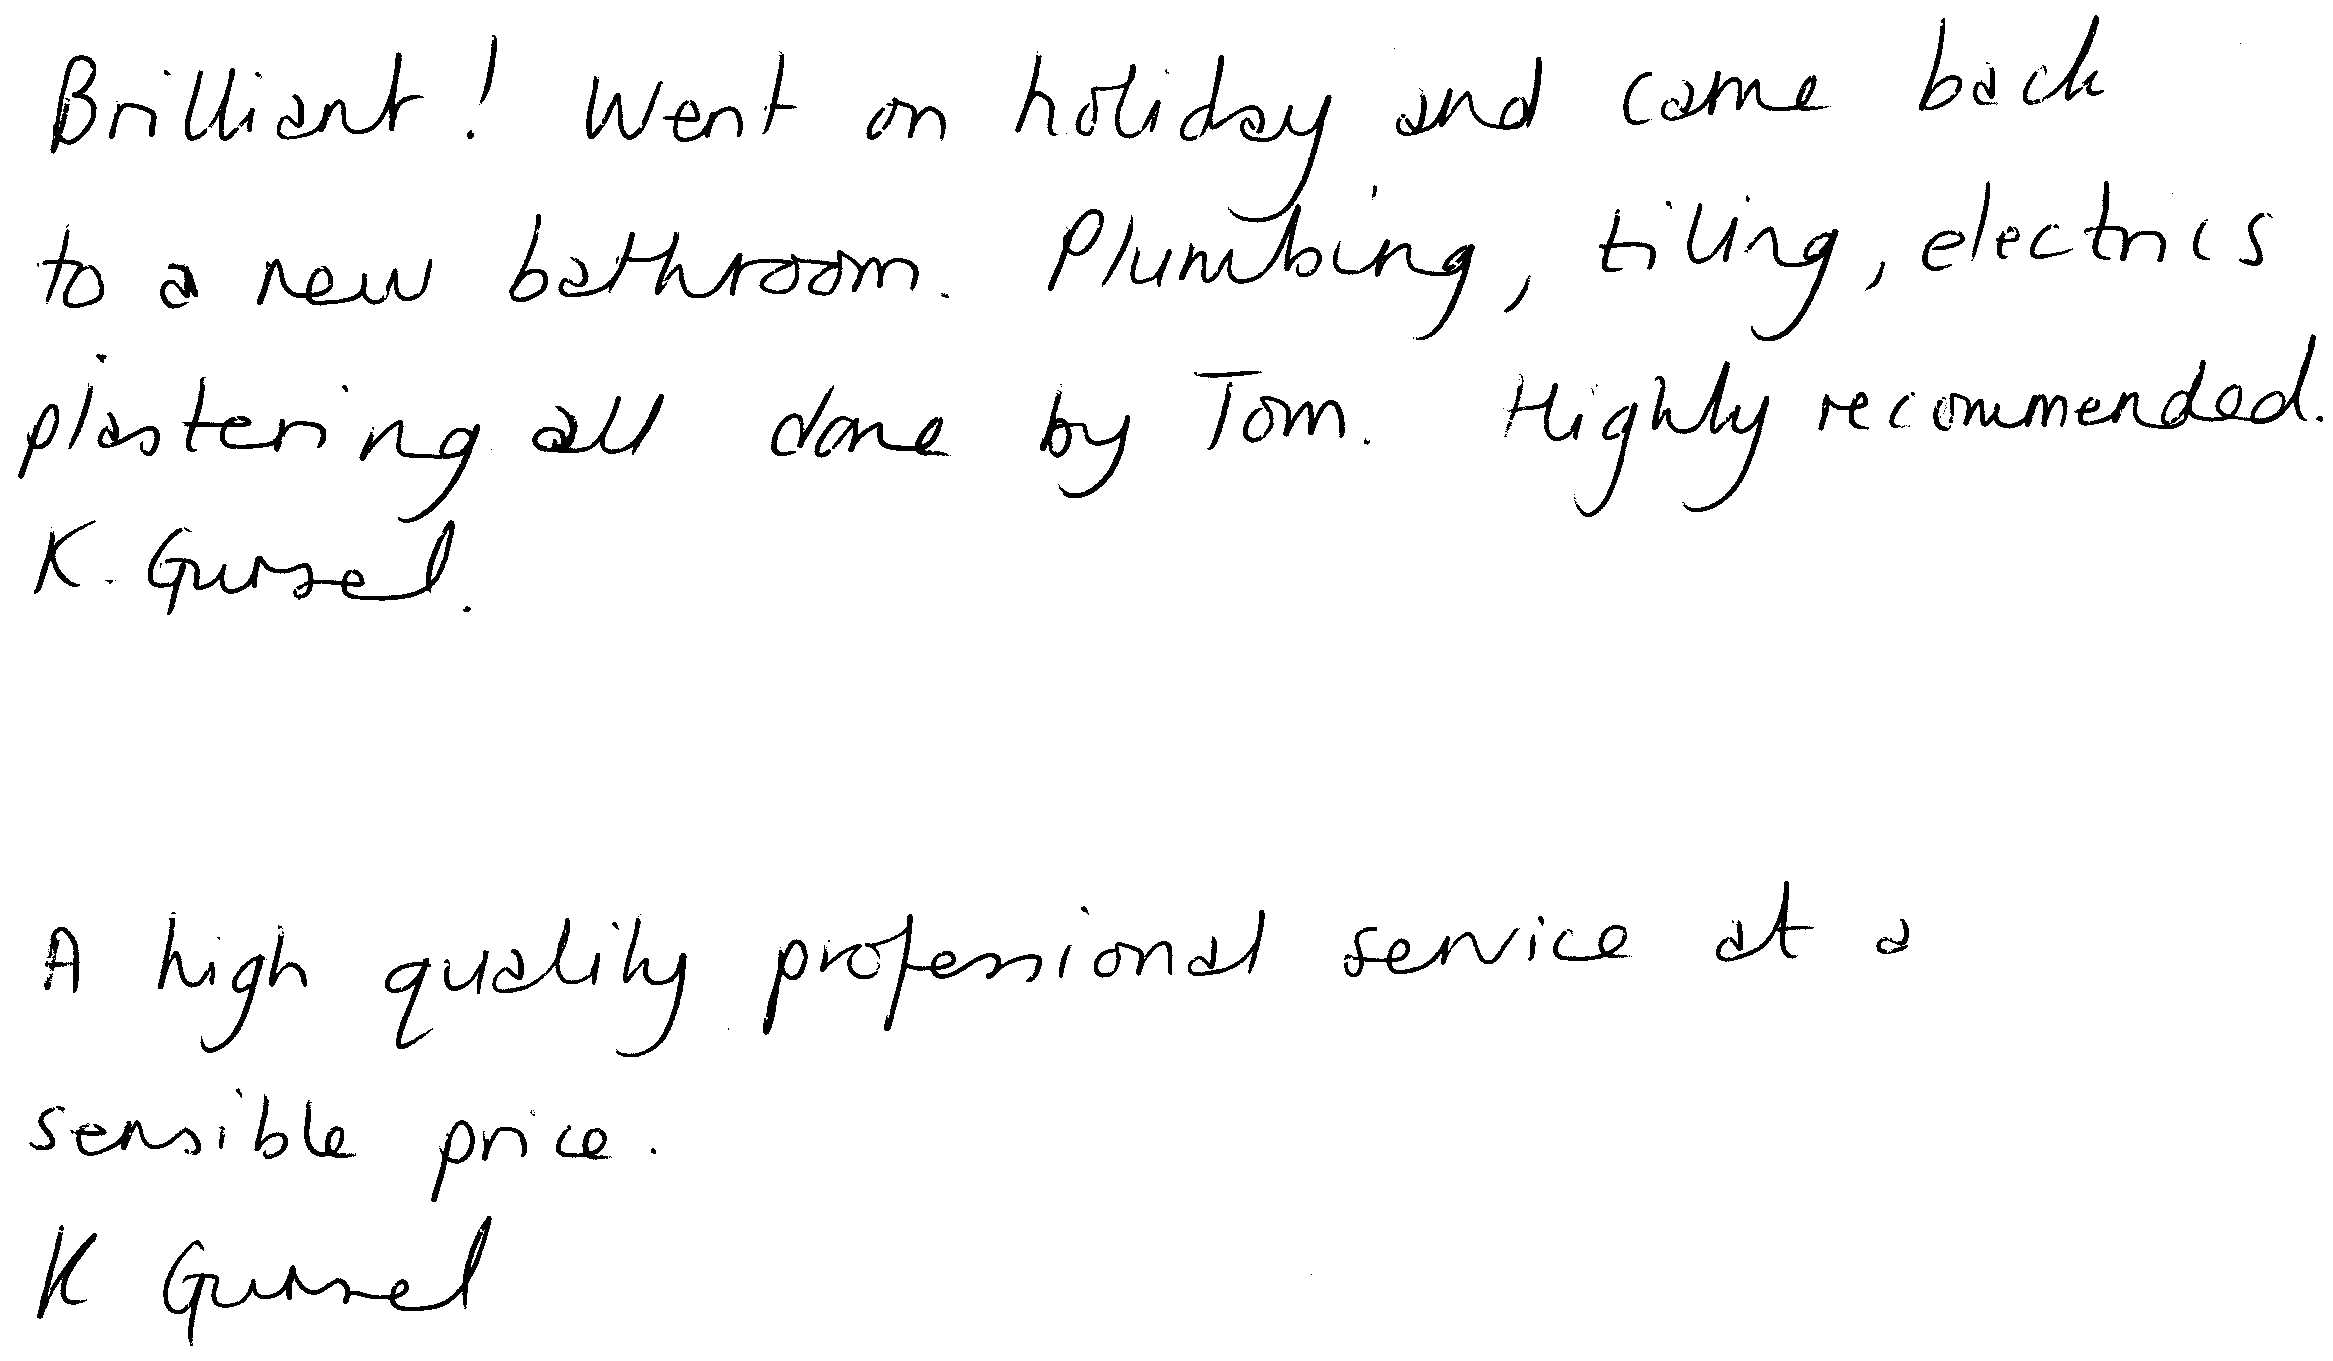 Brilliant! Went on holiday and came back
to a new bathroom. Plumbing, tiling, electrics
plastering all done by Tom. Highly recommended.
K. Gursel.
A high quality professional service at a
sensible price.
K Gursel